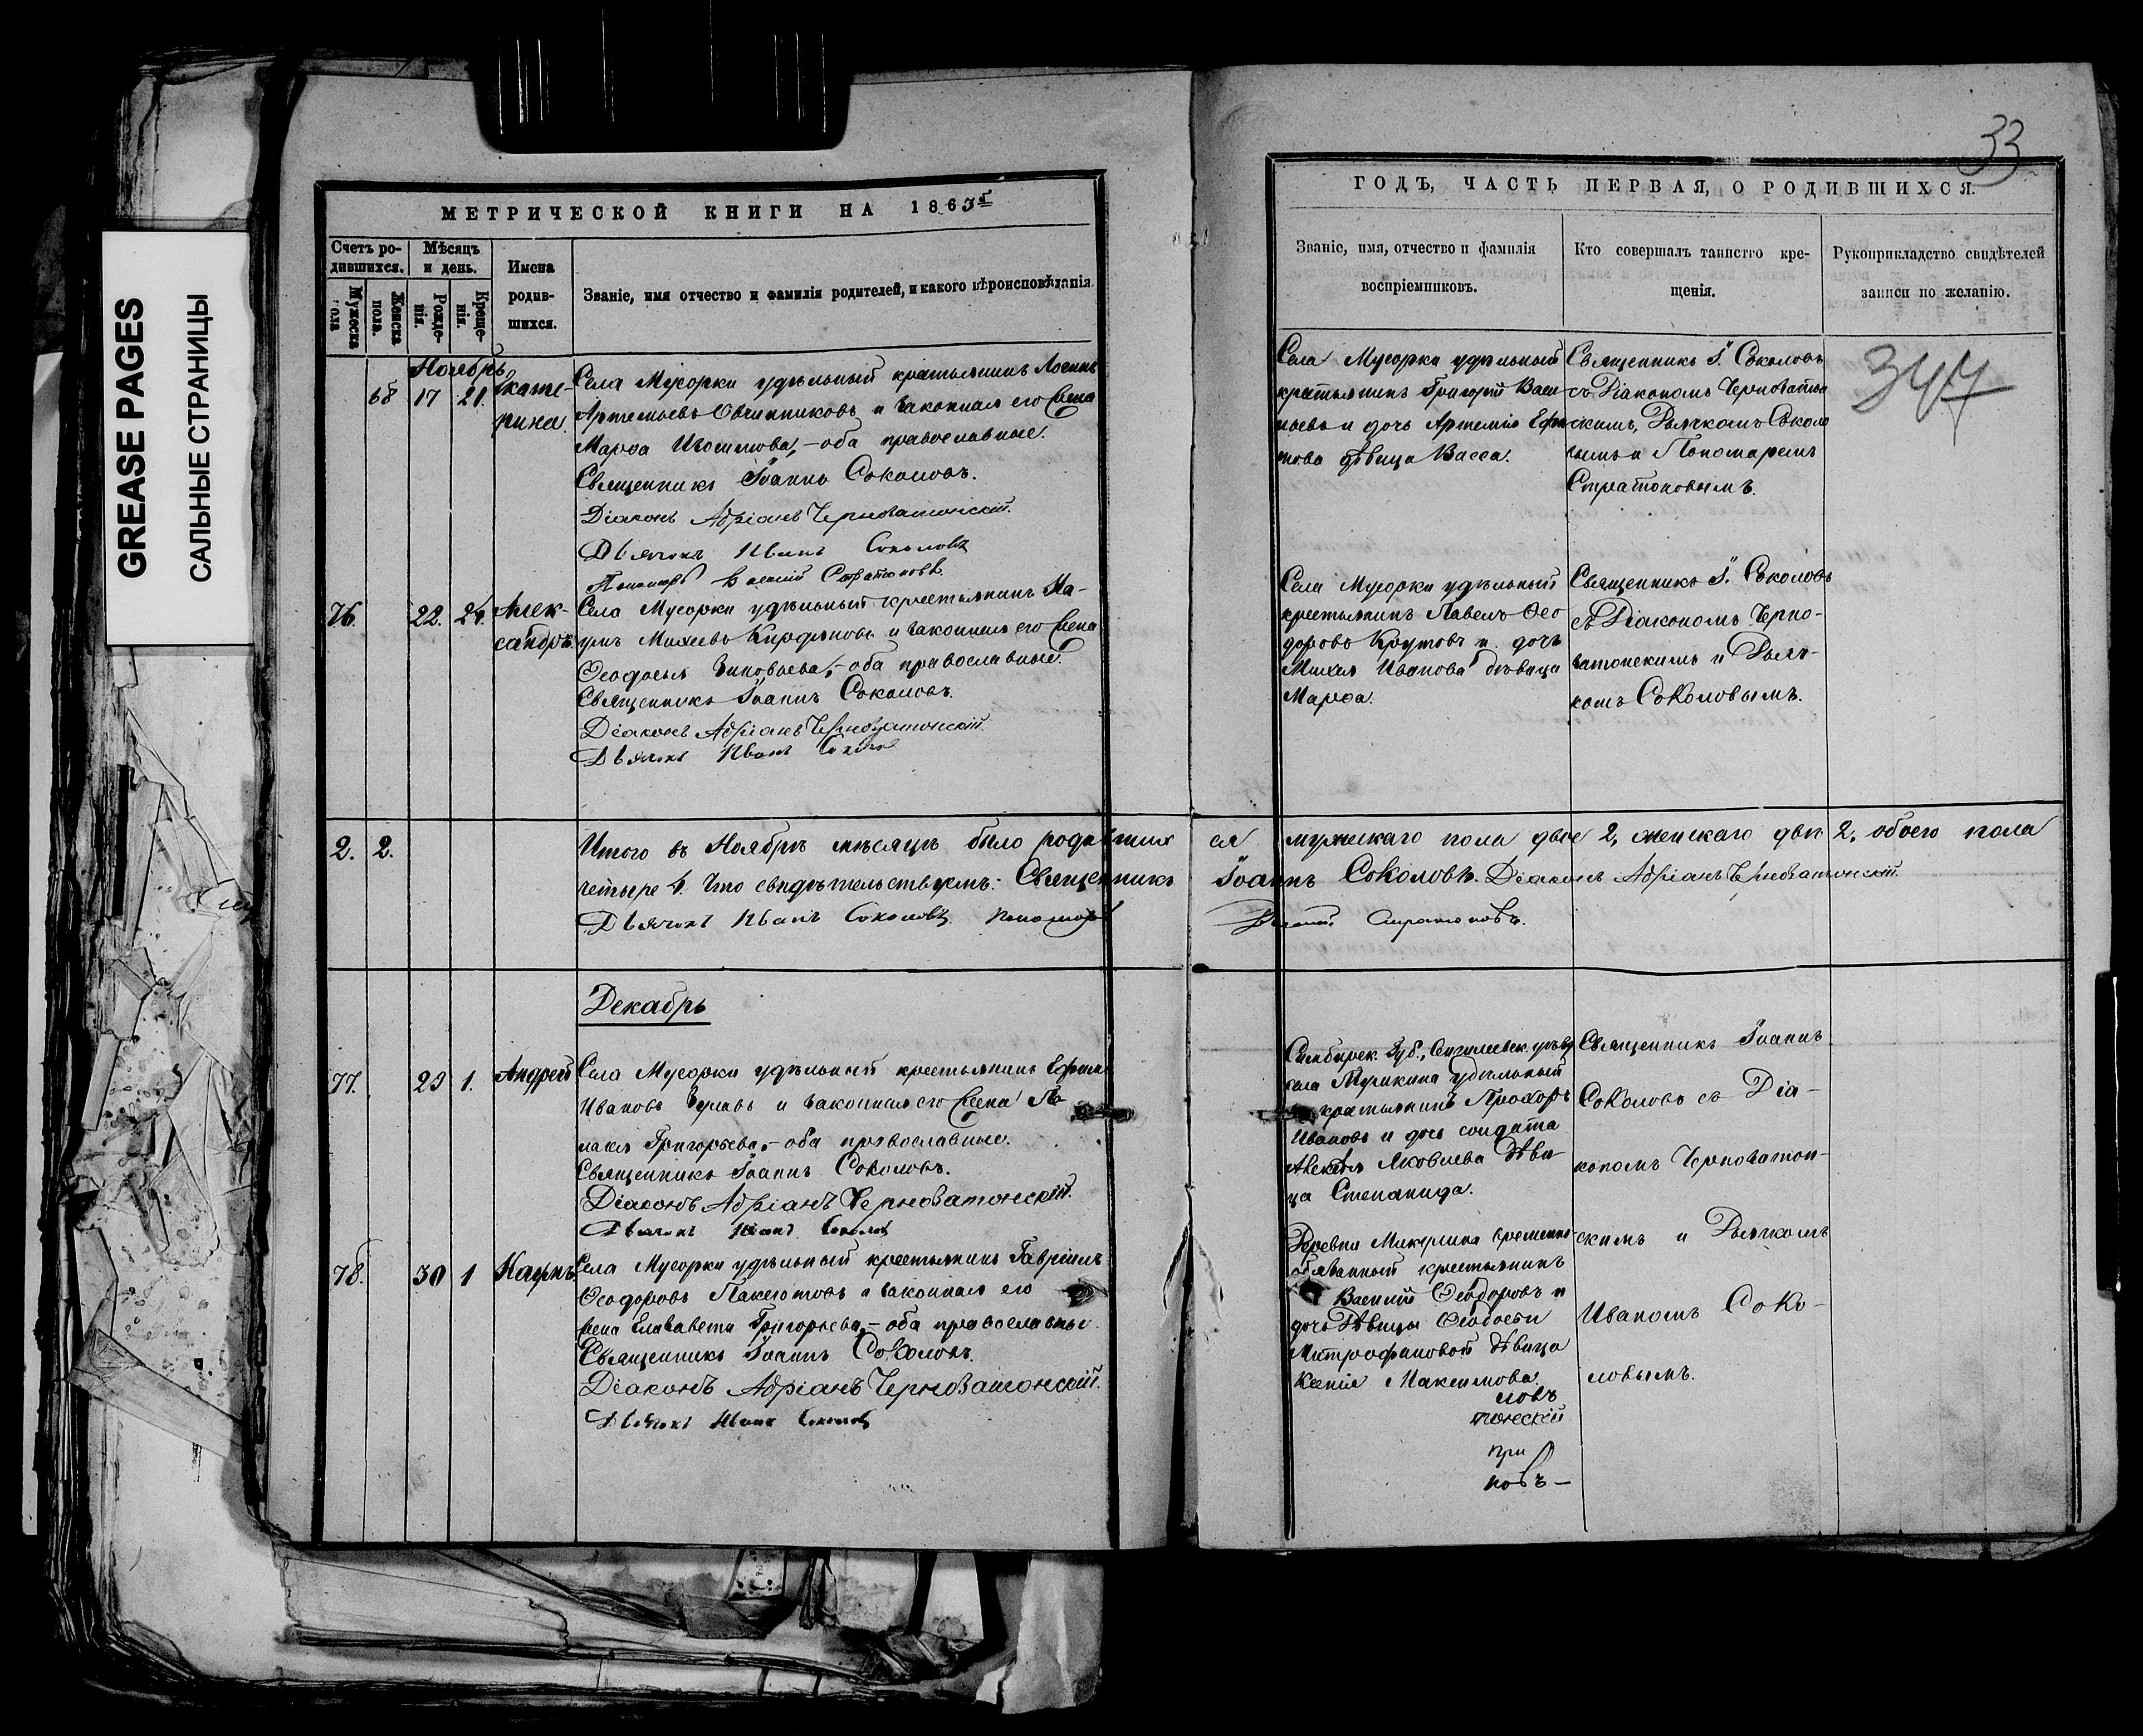 GREASE PAGES
САЛЬНЫЕ СТРАНИЦЫ
МЕТРИЧЕСКОЙ КНИГИ НА 1863й
Счетъ ро-
дившихся.
Мѣсяцъ
и день.
Имена
родив-
шихся.
Званіе, имя отчество и фамилія родителей, и какого вѣроисповѣданія.
Мужеска
пола
Женска
пола.
Рожде-
нія.
Креще-
нія.
Ноябрь
68 17 21. Екате-
рина.
Села Мусорки удѣльный крестьянинъ Логинъ
Артемьевъ Овчинниковъ и законная его жена
Марѳа Изосимова, – оба православные.
Священникъ Іоаннъ Соколовъ.
Діаконъ Адріанъ Черноватонскій.
Дьячокъ Иванъ Соколовъ
Пономарь Василій Стратоновъ.
76. 22. 24. Алек-
сандръ.
Села Мусорки удѣльный крестьянинъ На-
умъ Михеевъ и законная его жена
Ѳеодосья Зиновьева, – оба православные.
Священникъ Іоаннъ Соколовъ.
Діаконъ Адріанъ Черноватонскій.
Дьячокъ Иванъ Соколов
2. 2.
Итого въ Ноябрѣ мѣсяцѣ было родивших
четыре 4. Что свидѣтельствуемъ: Священникъ
Дьячокъ Иванъ Соколовъ Пономарь
Декабрь
77. 29 1. Андрей
Села Мусорки удѣльный крестьянинъ Ефимъ
Ивановъ и законная его жена Пе-
лагея Григорьева, – оба православные.
Священникъ Іоаннъ Соколовъ.
Діаконъ Адріанъ Черноватонскій.
Дьячокъ Иванъ Соколов
78. 30 1 Наумъ
Села Мусорки удѣльный крестьянинъ Гавріилъ
Ѳеодоровъ и законная его
жена Елизавета Григорьева, – оба православные.
Священникъ Іоаннъ Соколовъ.
Діаконъ Адріанъ Черноватонскій.
Дьячокъ Иванъ Соколовъ
33
ГОДЪ, ЧАСТЬ ПЕРВАЯ, О РОДИВШИХСЯ.
Званіе, имя, отчество и фамилія
воспріемниковъ.
Кто совершалъ таинство кре-
щенія.
Рукоприкладство свидѣтелей
записи по желанію.
Села Мусорки удѣльный
крестьянинъ Григорій Васи
льевъ и дочь Артемія Ефи
мова дѣвица Васса.
Священникъ І. Соколовъ
съ Діакономъ Черноватон
скимъ, Дьячкомъ Соколо
вымъ и Пономаремъ
Стратоновымъ.
347
Села Мусорки удѣльный
крестьянинъ Павелъ Ѳео
доровъ Крутовъ и дочь
Михея Иванова дѣвица
Марѳа.
Священникъ І. Соколовъ
съ Діакономъ Черно-
ватонскимъ и Дьяч-
комъ Соколовымъ.
ся мужскаго пола двое 2, женскаго двѣ 2, обоего пола
Іоаннъ Соколовъ. Діаконъ Адріанъ Черноватонскій.
Василій Стратоновъ.
Симбирск. Губ., Сенгилеевск. уѣзда
села удѣльный
крестьянинъ Прохоръ
Ивановъ и дочь солдата
Алексѣя Яковлева дѣви
ца Степанида.
Священникъ Іоаннъ
Соколовъ съ Діа-
кономъ Черноватон-
скимъ и Дьячкомъ
Иваномъ Соко-
ловымъ.
Деревни Микулина временно-
обязанный крестьянинъ
Василій Ѳеодоровъ и
дочь дѣвицы Ѳеодосьи
Митрофановой дѣвица
Ксенія Максимова.
ловъ
тонскій
при
новъ –